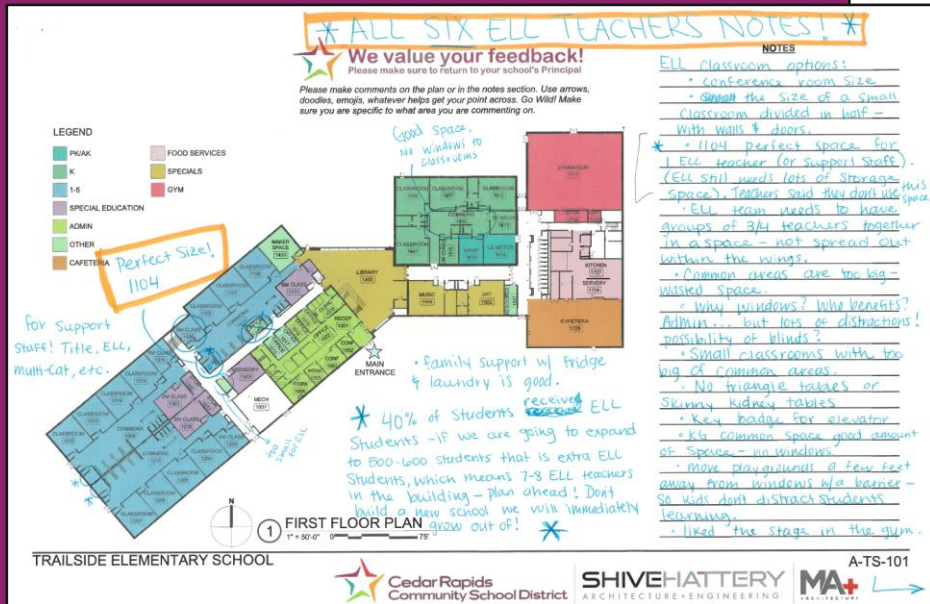 * ALL SIX ELL TEACHERS NOTES! *
We value your feedback!
Please make sure to return to your school's Principal
Please make comments on the plan or in the notes section. Use arrows,
doodles, emojis, whatever helps get your point across. Go Wild! Make
sure you are specific to what area you are commenting on.
LEGEND
PK/AK
K
1-5
SPECIAL EDUCATION
ADMIN
OTHER
CAFETERIA
FOOD SERVICES
SPECIALS
GYM
Good Space,
No windows to
classrooms
Perfect Size!
1104
for Support
Staff! Title, ELL,
multi-Cat, etc.
MAKER
SPACE
1403
LIBRARY
COMMONS
SM CLASS
CLASSROOM
CLASSROOM
CLASSROOM
CLASSROOM
COMMONS
GYMNASIUM
KITCHEN
1727
SERVERY
CAFETERIA
MUSIC
ART
RECEP
CONF
CONF
MECH
1007
MAIN
ENTRANCE
too
small
for ELL
• family support w/ fridge
& laundry is good.
* 40% of Students receive ELL
Students - if we are going to expand
to 500-600 students that is extra ELL
Students, which means 7-8 ELL teachers
in the building - plan ahead! Don't
build a new school we will immediately
grow out of! *
NOTES
ELL classroom options:
• conference room size
• the size of a small
classroom divided in half -
with walls & doors.
* • 1104 perfect space for
1 ELL teacher (or support staff).
(ELL still needs lots of storage
space). Teachers said they don't use this
space.
• ELL team needs to have
groups of 3/4 teachers together
in a space - not spread out
within the wings.
• Common areas are too big -
wasted space.
• Why windows? Who benefits?
Admin... but lots of distractions!
possibility of blinds?
• Small classrooms with too
big of common areas.
• No triangle tables or
skinny kidney tables
• Key badge for elevator
• KG common space good amount
of space - no windows.
• move playgrounds a few feet
away from windows w/a barrier -
so kids don't distract students
learning.
• liked the stage in the gym.
N
1 FIRST FLOOR PLAN
1" = 50'-0" 0 75'
TRAILSIDE ELEMENTARY SCHOOL
A-TS-101
Cedar Rapids
Community School District
SHIVEHATTERY
ARCHITECTURE+ENGINEERING
MA+
ARCHITECTURE